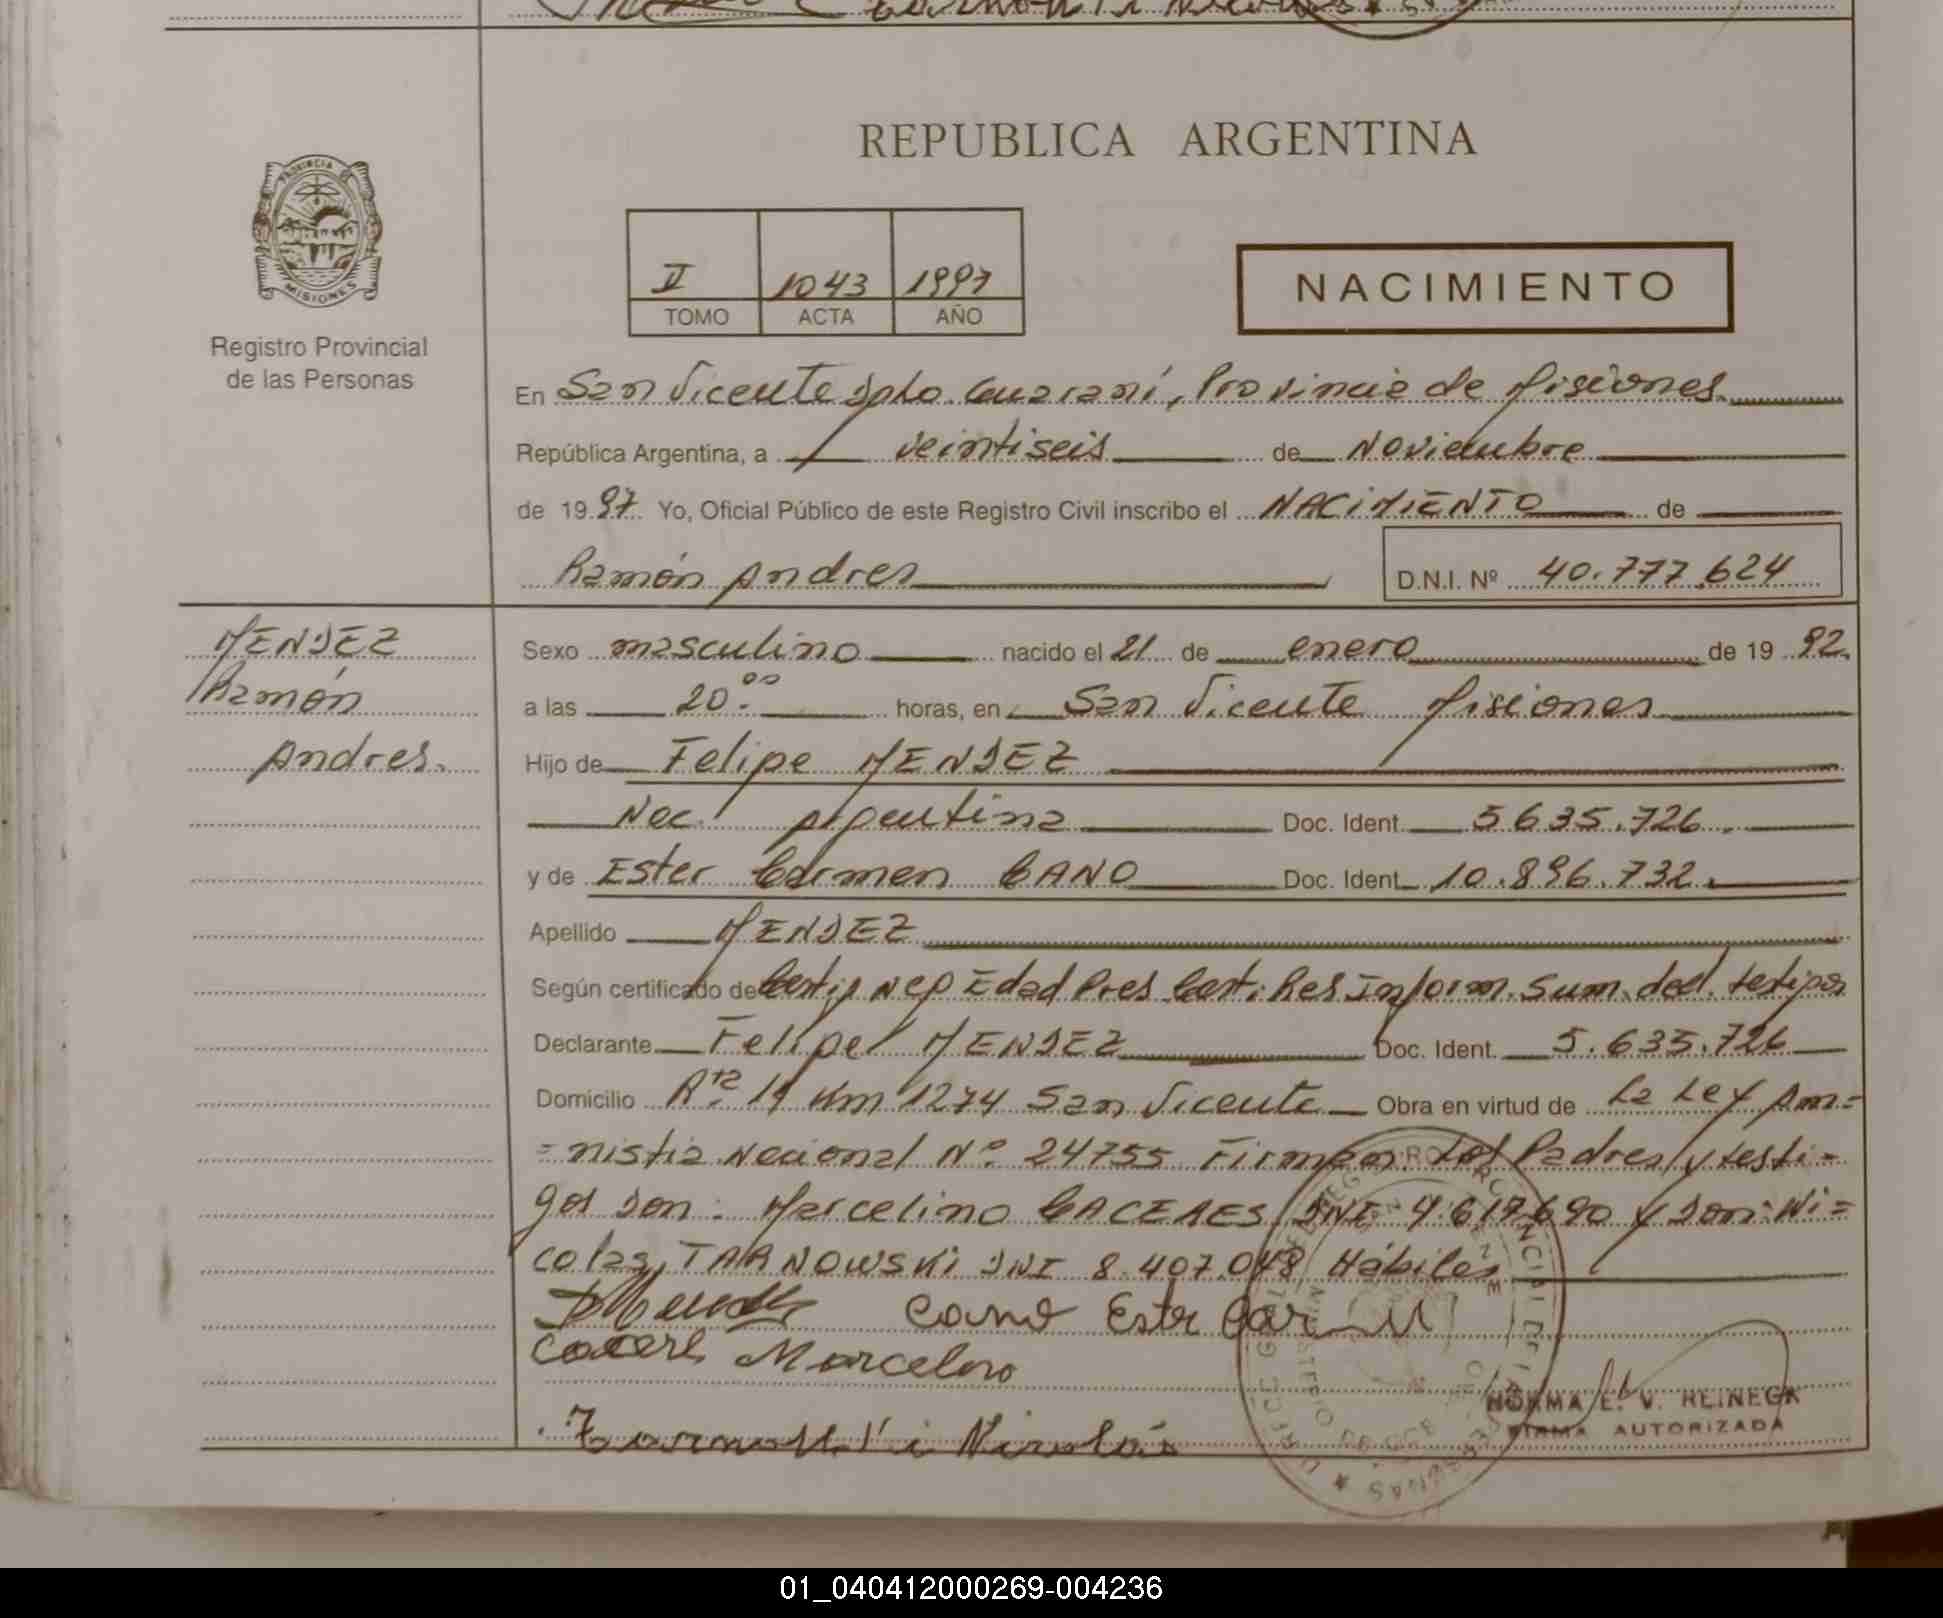 REPUBLICA ARGENTINA
PROVINCIA DE
MISIONES
Registro Provincial
de las Personas
II 1043 1997
TOMO ACTA AÑO
NACIMIENTO
En San Vicente Dpto. Guaraní, Provincia de Misiones.
República Argentina, a veintiseis de Noviembre
de 1997 Yo, Oficial Público de este Registro Civil inscribo el NACIMIENTO de
Ramón Andres D.N.I. Nº 40.777.624
MENDEZ
Ramón
Andres.
Sexo masculino nacido el 21 de enero de 1992.
a las 20.00 horas, en San Vicente Misiones
Hijo de Felipe MENDEZ
Nac. Argentina Doc. Ident. 5.635.726.
y de Ester Carmen CANO Doc. Ident. 10.896.732.
Apellido MENDEZ
Según certificado de Certif Neg Edad Pres Cert. Res Inform. Sum. decl. testigos
Declarante Felipe MENDEZ Doc. Ident. 5.635.726
Domicilio Rta. 14 Km 1274 San Vicente Obra en virtud de La Ley Am=
=nistia Nacional Nº 24755 Firman los Padres y testi-
gos Don: Marcelino CACERES DNI 7.617.690 y Don: Ni=
colas TARNOWSKI DNI 8.407.048 Hábiles
Cano Ester Car
Cacere Marcelino
Nicolás
NORMA E. V. REINECK
FIRMA AUTORIZADA
01_040412000269-004236